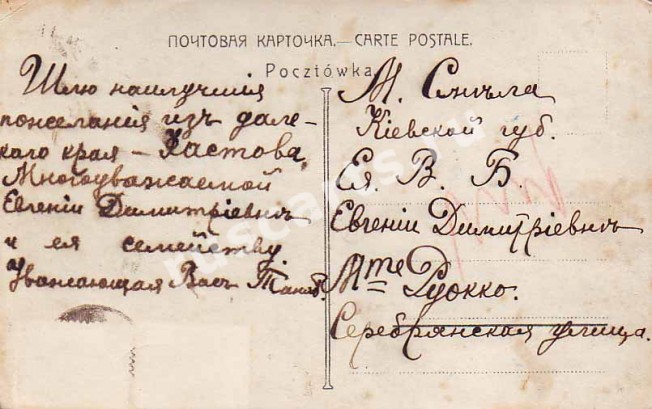 ПОЧТОВАЯ КАРТОЧКА.—CARTE POSTALE.
Pocztówka.
Шлю наилучшія
пожеланія изъ дале-
каго края – Хастова,
Многоуважаемой
Евгеніи Димитріевнѣ
и ея семейству.
Уважающая Васъ
М. Смѣла
Кіевской губ.
Ея В. Б.
Евгеніи Димитріевнѣ
Mme Руокко.
Серебрянская улица.
ruscarts.ru